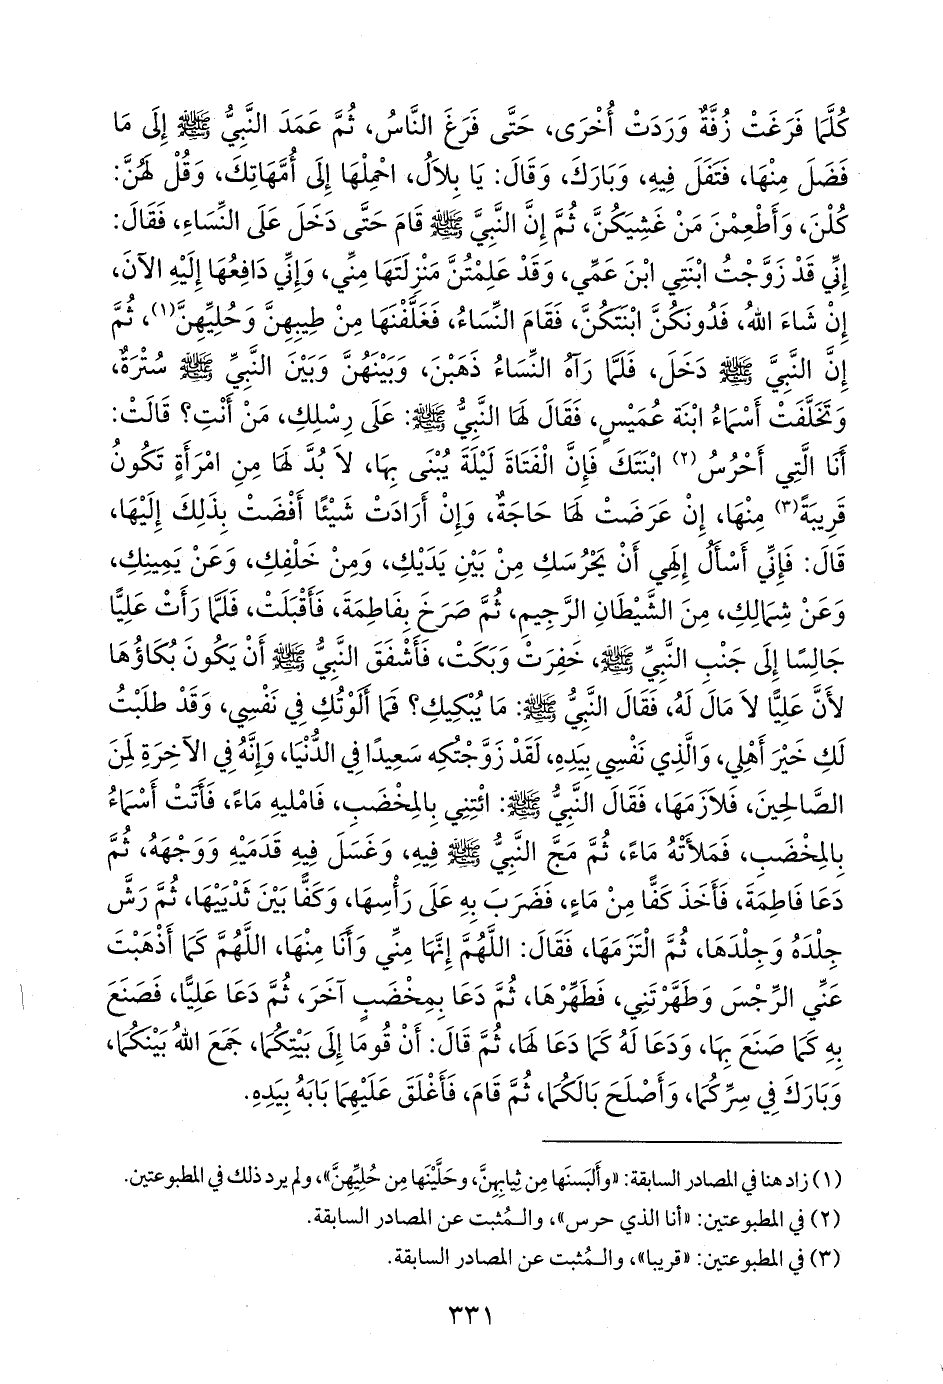 كُلَّمَا فَرَغَتْ زُفَّةٌ وَرَدَتْ أُخْرَى، حَتَّى فَرَغَ النَّاسُ، ثُمَّ عَمَدَ النَّبِيُّ ﷺ إِلَى مَا
فَضَلَ مِنْهَا، فَتَفَلَ فِيهِ، وَبَارَكَ، وَقَالَ: يَا بِلاَلُ، احْمِلْهَا إِلَى أُمَّهَاتِكَ، وَقُلْ لَهُنَّ:
كُلْنَ، وَأَطْعِمْنَ مَنْ غَشِيَكُنَّ، ثُمَّ إِنَّ النَّبِيَّ ﷺ قَامَ حَتَّى دَخَلَ عَلَى النِّسَاءِ، فَقَالَ:
إِنِّي قَدْ زَوَّجْتُ ابْنَتِي ابْنَ عَمِّي، وَقَدْ عَلِمْتُنَّ مَنْزِلَتَهَا مِنِّي، وَإِنِّي دَافِعُهَا إِلَيْهِ الآنَ،
إِنْ شَاءَ اللهُ، فَدُونَكُنَّ ابْنَتَكُنَّ، فَقَامَ النِّسَاءُ، فَغَلَّفْنَهَا مِنْ طِيبِهِنَّ وَحُلِيِّهِنَّ(١)، ثُمَّ
إِنَّ النَّبِيَّ ﷺ دَخَلَ، فَلَمَّا رَآهُ النِّسَاءُ ذَهَبْنَ، وَبَيْنَهُنَّ وَبَيْنَ النَّبِيِّ ﷺ سُتْرَةٌ،
وَتَخَلَّفَتْ أَسْمَاءُ ابْنَة عُمَيْسٍ، فَقَالَ لَهَا النَّبِيُّ ﷺ: عَلَى رِسْلِكِ، مَنْ أَنْتِ؟ قَالَتْ:
أَنَا الَّتِي أَحْرُسُ(٢) ابْنَتَكَ فَإِنَّ الْفَتَاةَ لَيْلَةَ يُبْنَى بِهَا، لاَ بُدَّ لَهَا مِنِ امْرَأَةٍ تَكُونُ
قَرِيبَةً(٣) مِنْهَا، إِنْ عَرَضَتْ لَهَا حَاجَةٌ، وَإِنْ أَرَادَتْ شَيْئًا أَفْضَتْ بِذَلِكَ إِلَيْهَا،
قَالَ: فَإِنِّي أَسْأَلُ إِلَهِي أَنْ يَحْرُسَكِ مِنْ بَيْنِ يَدَيْكِ، وَمِنْ خَلْفِكِ، وَعَنْ يَمِينِكِ،
وَعَنْ شِمَالِكِ، مِنَ الشَّيْطَانِ الرَّجِيمِ، ثُمَّ صَرَخَ بِفَاطِمَةَ، فَأَقْبَلَتْ، فَلَمَّا رَأَتْ عَلِيًّا
جَالِسًا إِلَى جَنْبِ النَّبِيِّ ﷺ، خَفِرَتْ وَبَكَتْ، فَأَشْفَقَ النَّبِيُّ ﷺ أَنْ يَكُونَ بُكَاؤُهَا
لأَنَّ عَلِيًّا لاَ مَالَ لَهُ، فَقَالَ النَّبِيُّ ﷺ: مَا يُبْكِيكِ؟ فَمَا أَلَوْتُكِ فِي نَفْسِي، وَقَدْ طَلَبْتُ
لَكِ خَيْرَ أَهْلِي، وَالَّذِي نَفْسِي بِيَدِهِ، لَقَدْ زَوَّجْتُكِه سَعِيدًا فِي الدُّنْيَا، وَإِنَّهُ فِي الآخِرَةِ لَمِنَ
الصَّالِحِينَ، فَلاَزَمَهَا، فَقَالَ النَّبِيُّ ﷺ: ائْتِنِي بِالمِخْضَبِ، فَامْلِيهِ مَاءً، فَأَتَتْ أَسْمَاءُ
بِالمِخْضَبِ، فَمَلأَتْهُ مَاءً، ثُمَّ مَجَّ النَّبِيُّ ﷺ فِيهِ، وَغَسَلَ فِيهِ قَدَمَيْهِ وَوَجْهَهُ، ثُمَّ
دَعَا فَاطِمَةَ، فَأَخَذَ كَفًّا مِنْ مَاءٍ، فَضَرَبَ بِهِ عَلَى رَأْسِهَا، وَكَفًّا بَيْنَ ثَدْيَيْهَا، ثُمَّ رَشَّ
جِلْدَهُ وَجِلْدَهَا، ثُمَّ الْتَزَمَهَا، فَقَالَ: اللَّهُمَّ إِنَّهَا مِنِّي وَأَنَا مِنْهَا، اللَّهُمَّ كَمَا أَذْهَبْتَ
عَنِّي الرِّجْسَ وَطَهَّرْتَنِي، فَطَهِّرْهَا، ثُمَّ دَعَا بِمِخْضَبٍ آخَرَ، ثُمَّ دَعَا عَلِيًّا، فَصَنَعَ
بِهِ كَمَا صَنَعَ بِهَا، وَدَعَا لَهُ كَمَا دَعَا لَهَا، ثُمَّ قَالَ: أَنْ قُومَا إِلَى بَيْتِكُمَا، جَمَعَ اللهُ بَيْنَكُمَا،
وَبَارَكَ فِي سِرِّكُمَا، وَأَصْلَحَ بَالَكُمَا، ثُمَّ قَامَ، فَأَغْلَقَ عَلَيْهِمَا بَابَهُ بِيَدِهِ.
(١) زاد هنا في المصادر السابقة: «وأَلبَسنَها مِن ثِيابِهِنَّ، وحَلَّيْنَها مِن حُلِيِّهِنَّ»، ولم يرد ذلك في المطبوعتين.
(٢) في المطبوعتين: «أنا الذي حرس»، والـمُثبت عن المصادر السابقة.
(٣) في المطبوعتين: «قريبا»، والـمُثبت عن المصادر السابقة.
٣٣١